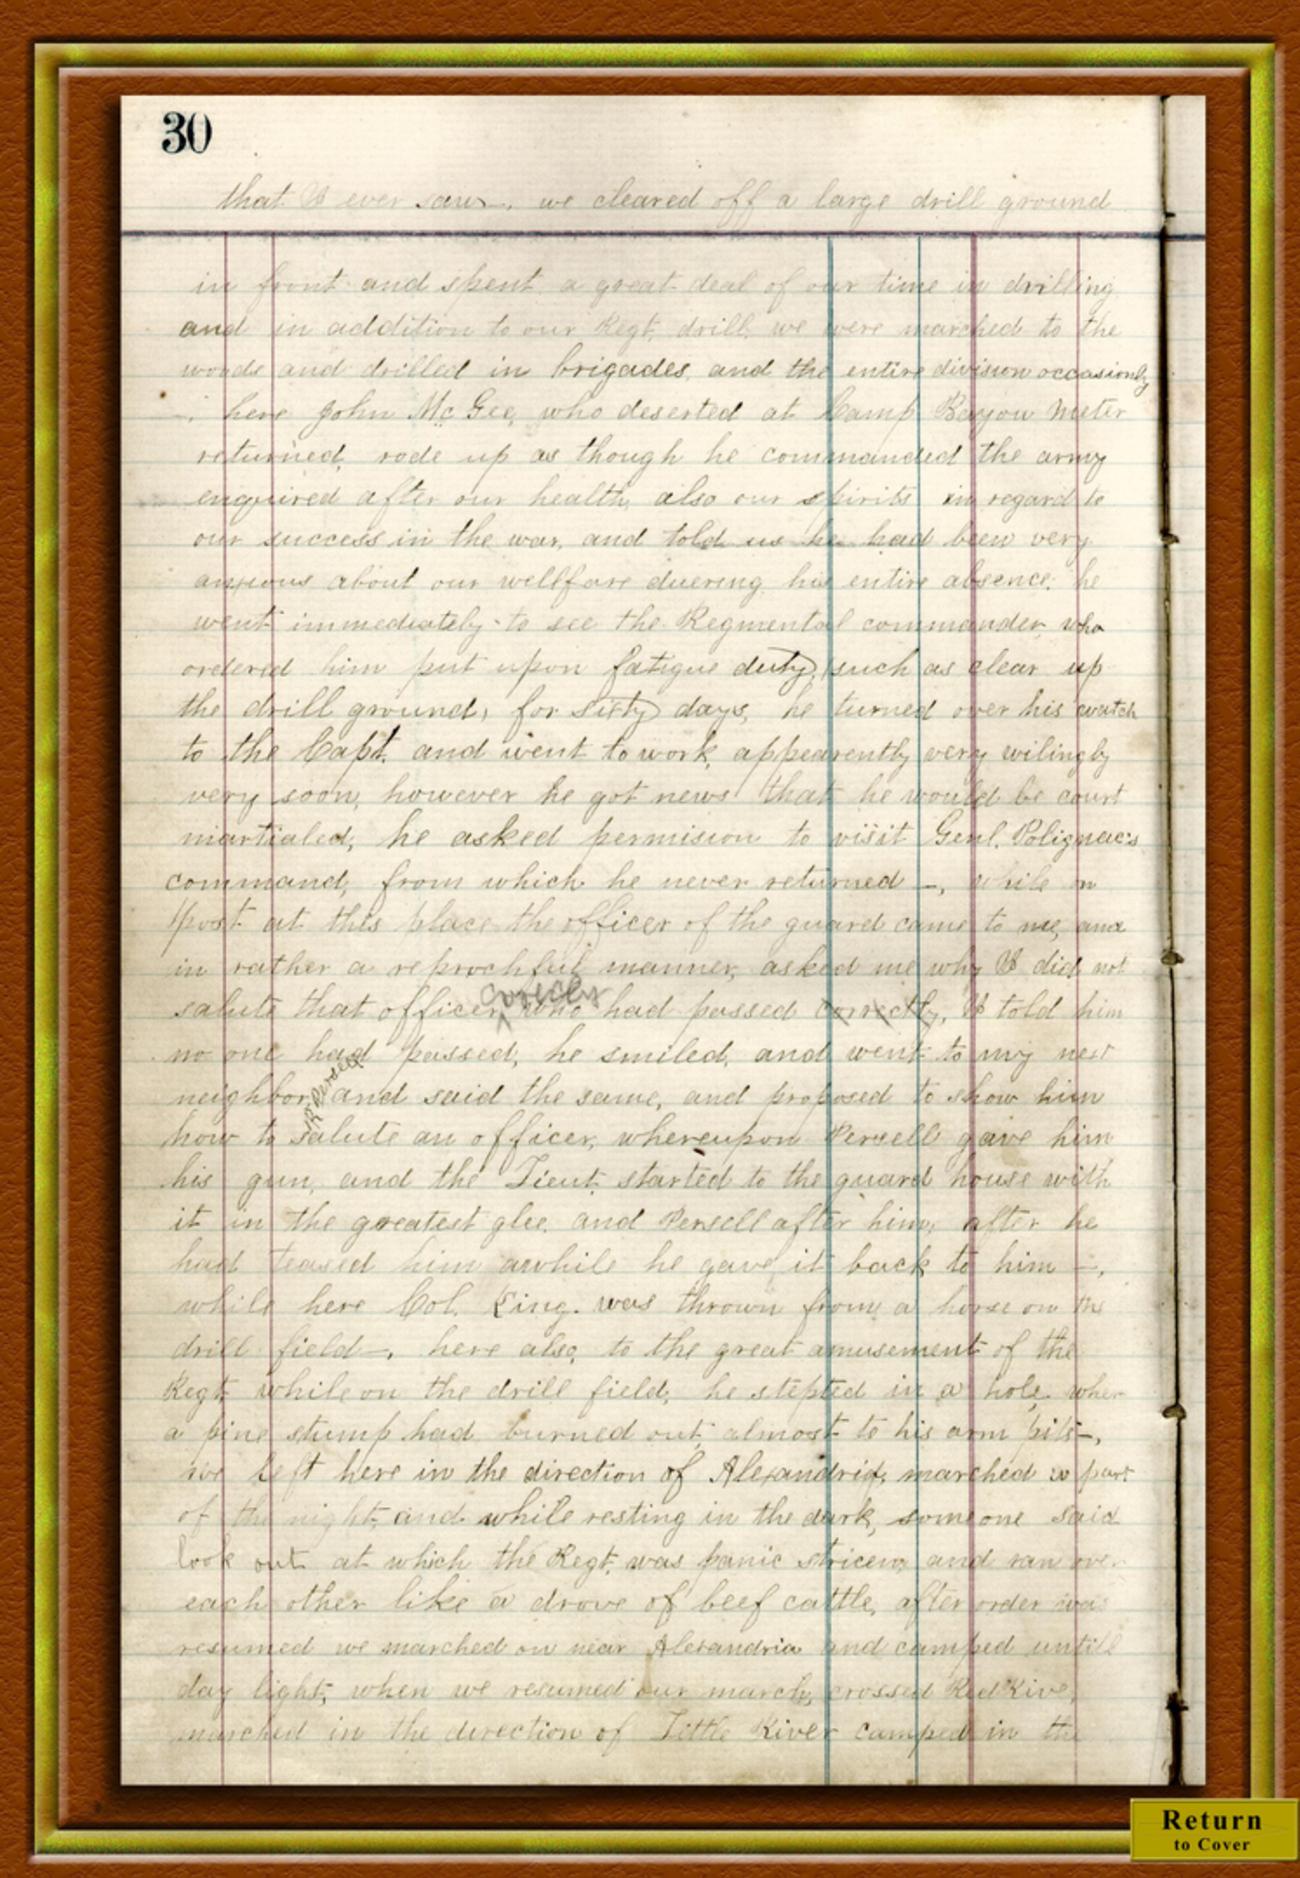 30
that I ever saw—, we cleared off a large drill ground
in front and spent a great deal of our time in drilling
and in addition to our Regt. drill we were marched to the
woods and drilled in brigades, and the entire division occasionly
here John Mc Gee, who deserted at Camp Bayou Meter
returned, rode up as though he commanded the army
enquired after our health, also our spirits in regard to
our success in the war, and told us he had been very
anxious about our wellfare duering his entire absence. he
went immediately to see the Regmental commander, who
ordered him put upon fatigue duty, such as clear up
the drill ground, for sixty days, he turned over his watch
to the Capt. and went to work, appearently very wilingly
very soon, however he got news that he would be court
martialed, he asked permision to visit Genl. Polignac's
command, from which he never returned —, while on
post at this place the officer of the guard came to me, and
in rather a reprochful manner, asked me why I did not
correctly
salute that officer, who had passed correctly, I told him
no one had passed, he smiled, and went to my next
neighbor, and said the same, and proposed to show him
how to salute an officer, whereupon Persell gave him
his gun, and the Lieut. started to the guard house with
it in the greatest glee, and Persell after him, after he
had teased him awhile he gave it back to him —,
while here Col. King. was thrown from a horse on the
drill field —, here also, to the great amusement of the
Regt. while on the drill field, he stepted in a hole wher
a pine stump had burned out, almost to his arm pits —,
we left here in the direction of Alexandria, marched a part
of the night, and while resting in the dark, some one said
look out at which the Regt. was panic stricen, and ran over
each other like a drove of beef cattle, after order was
resumed we marched on near Alexandria and camped untill
day light, when we resumed our march, crossed Red River,
marched in the direction of Little River camped in the
Return
to Cover